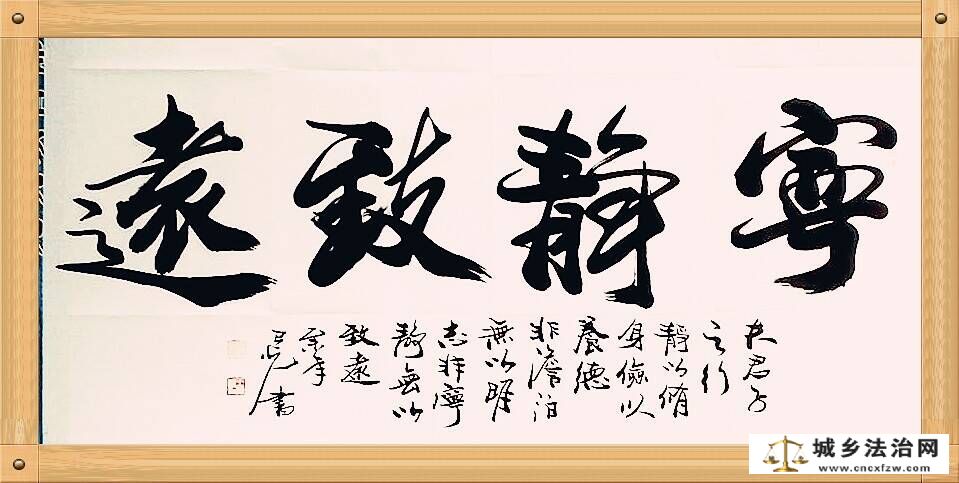 寧靜致遠
夫君子
之行
靜以脩
身儉以
養德
非澹泊
無以明
志非寧
靜無以
致遠
年
書
城乡法治网
www.cncxfzw.com